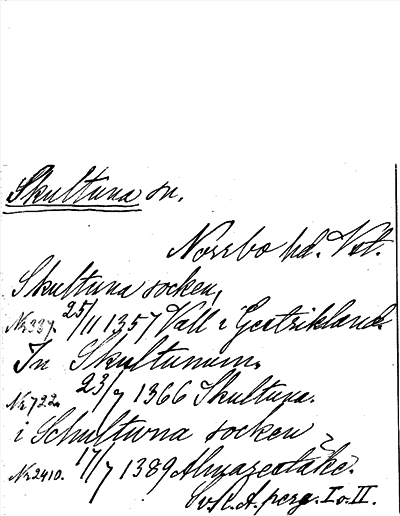 Skultuna sn.
Norrbo hd. Vstl.
Skultuna socken,
Nr 337. 25/11 1357 Vall i Gestrikland.
In Skultunum.
Nr 722. 23/7 1366 Skultuna.
i Schultwna socken
Nr 2410. 17/7 1389 Almarestäke.
Sv. R. A. perg. I o. II.